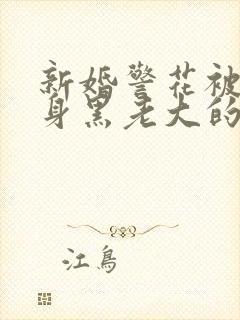 新婚警花被
身黑老大的
江鸟